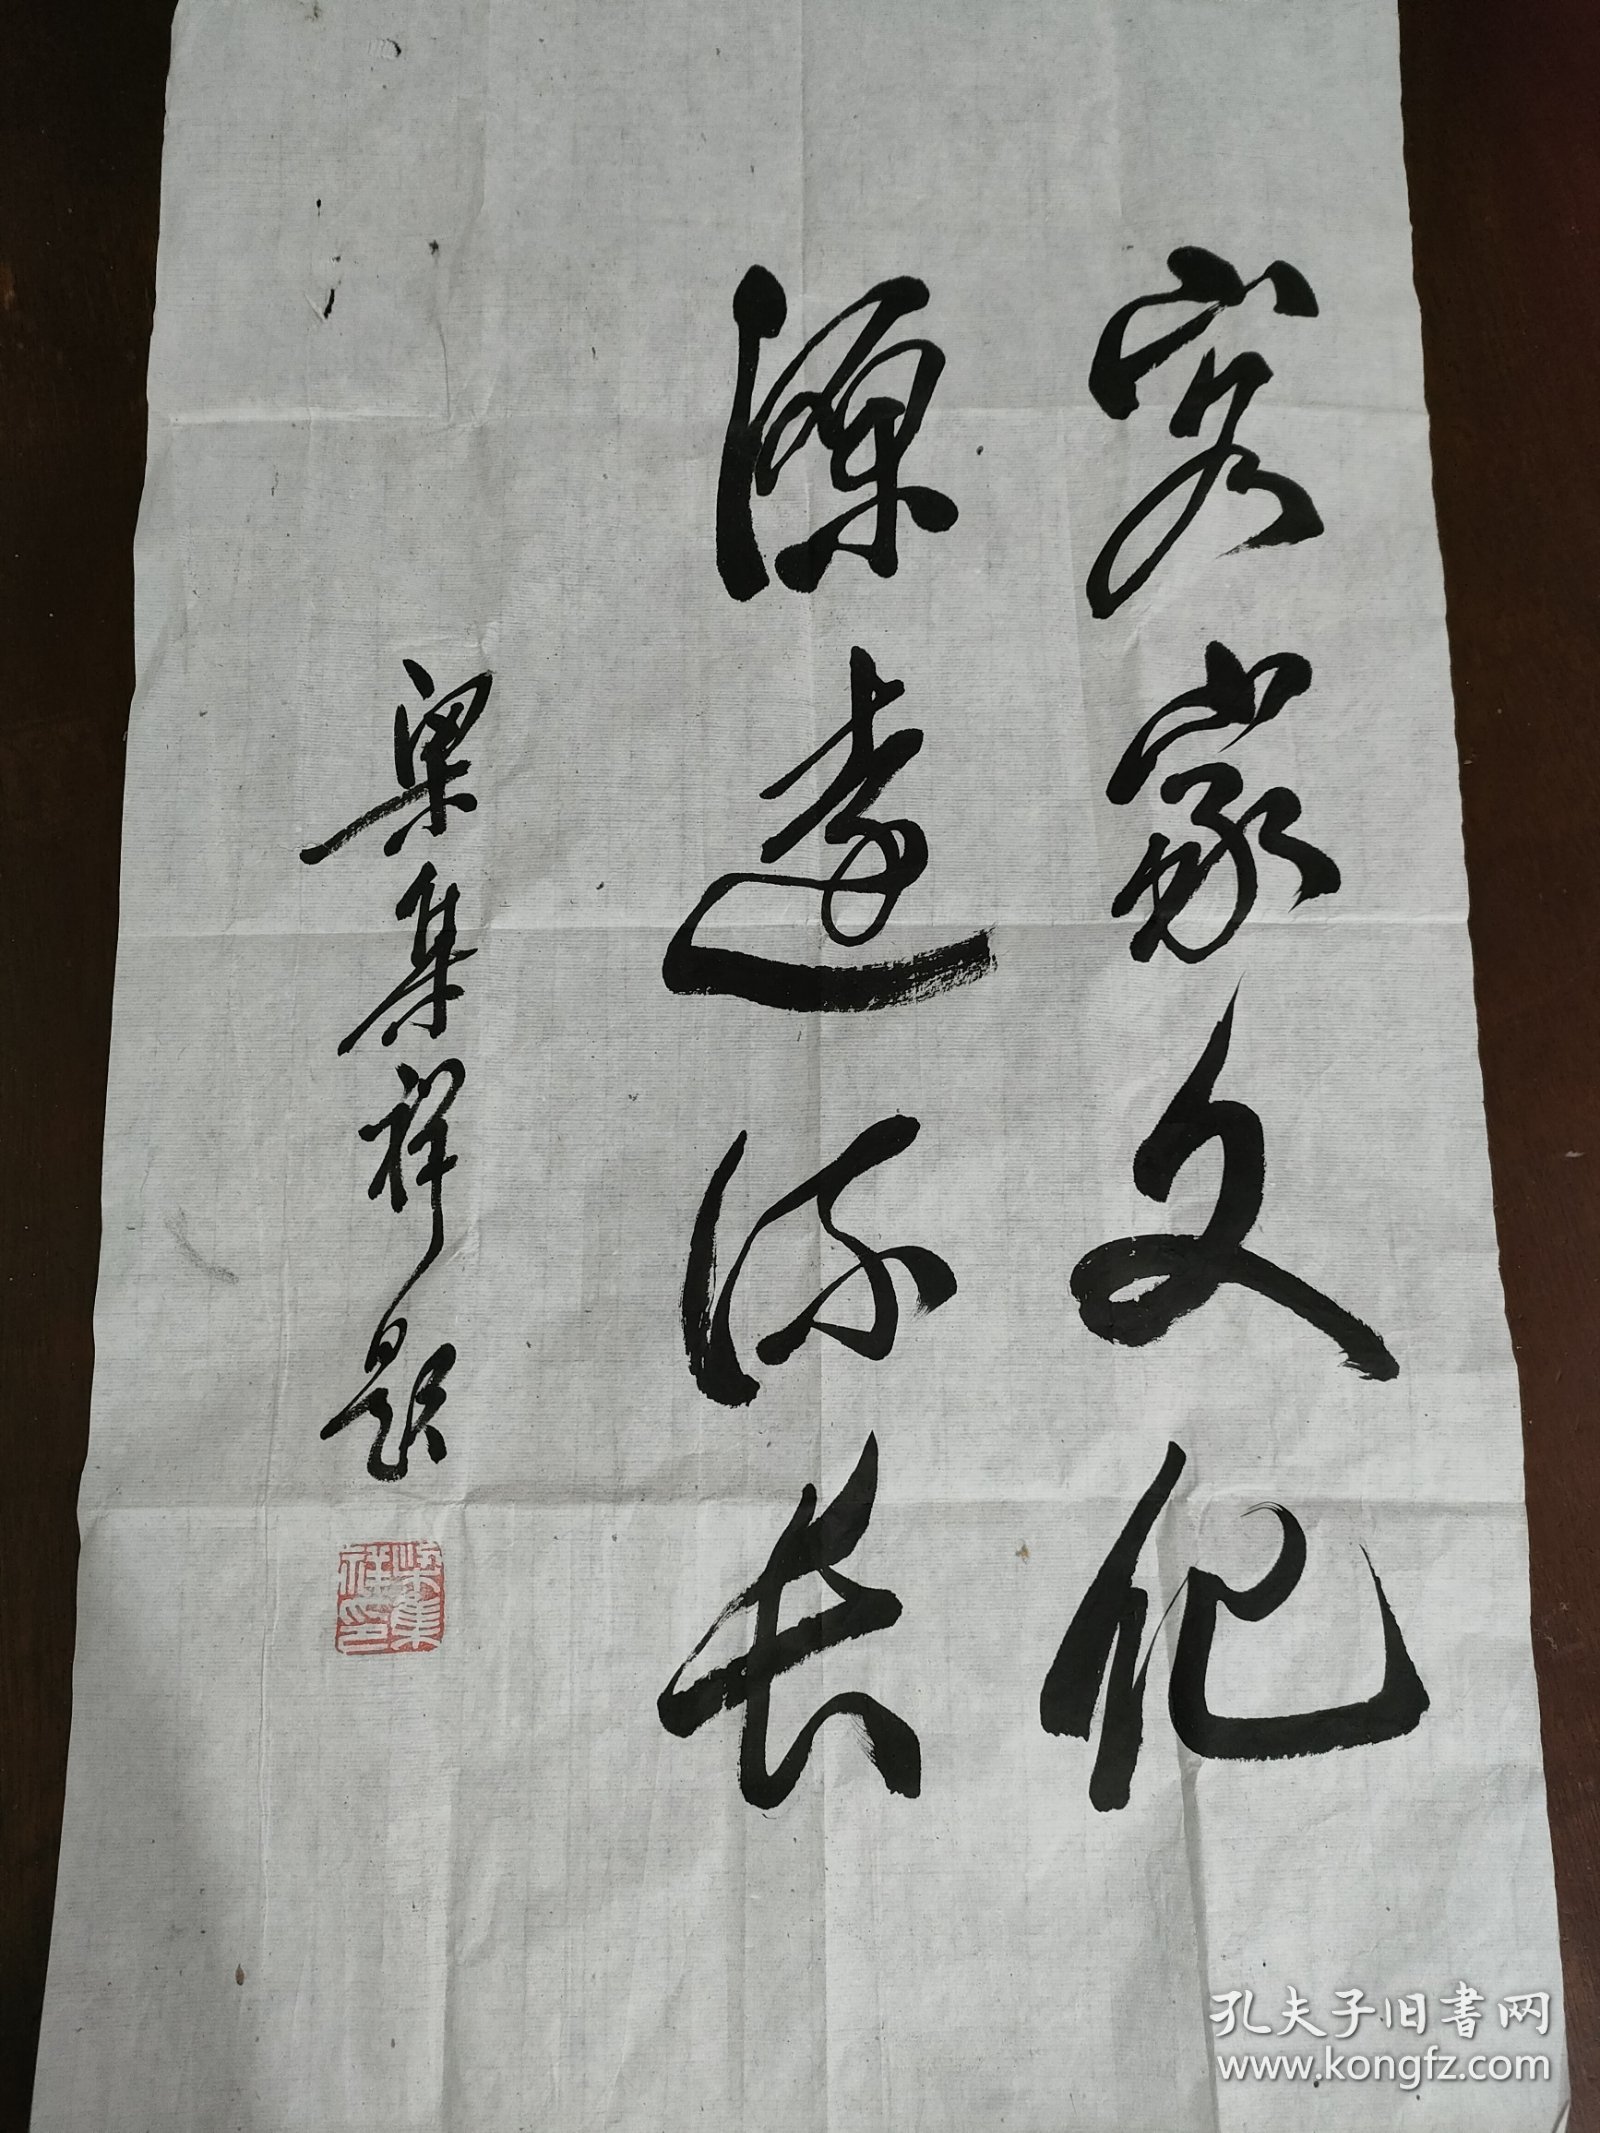 客家文化
源遠流长
梁集祥题
梁集祥印
孔夫子旧书网
www.kongfz.com